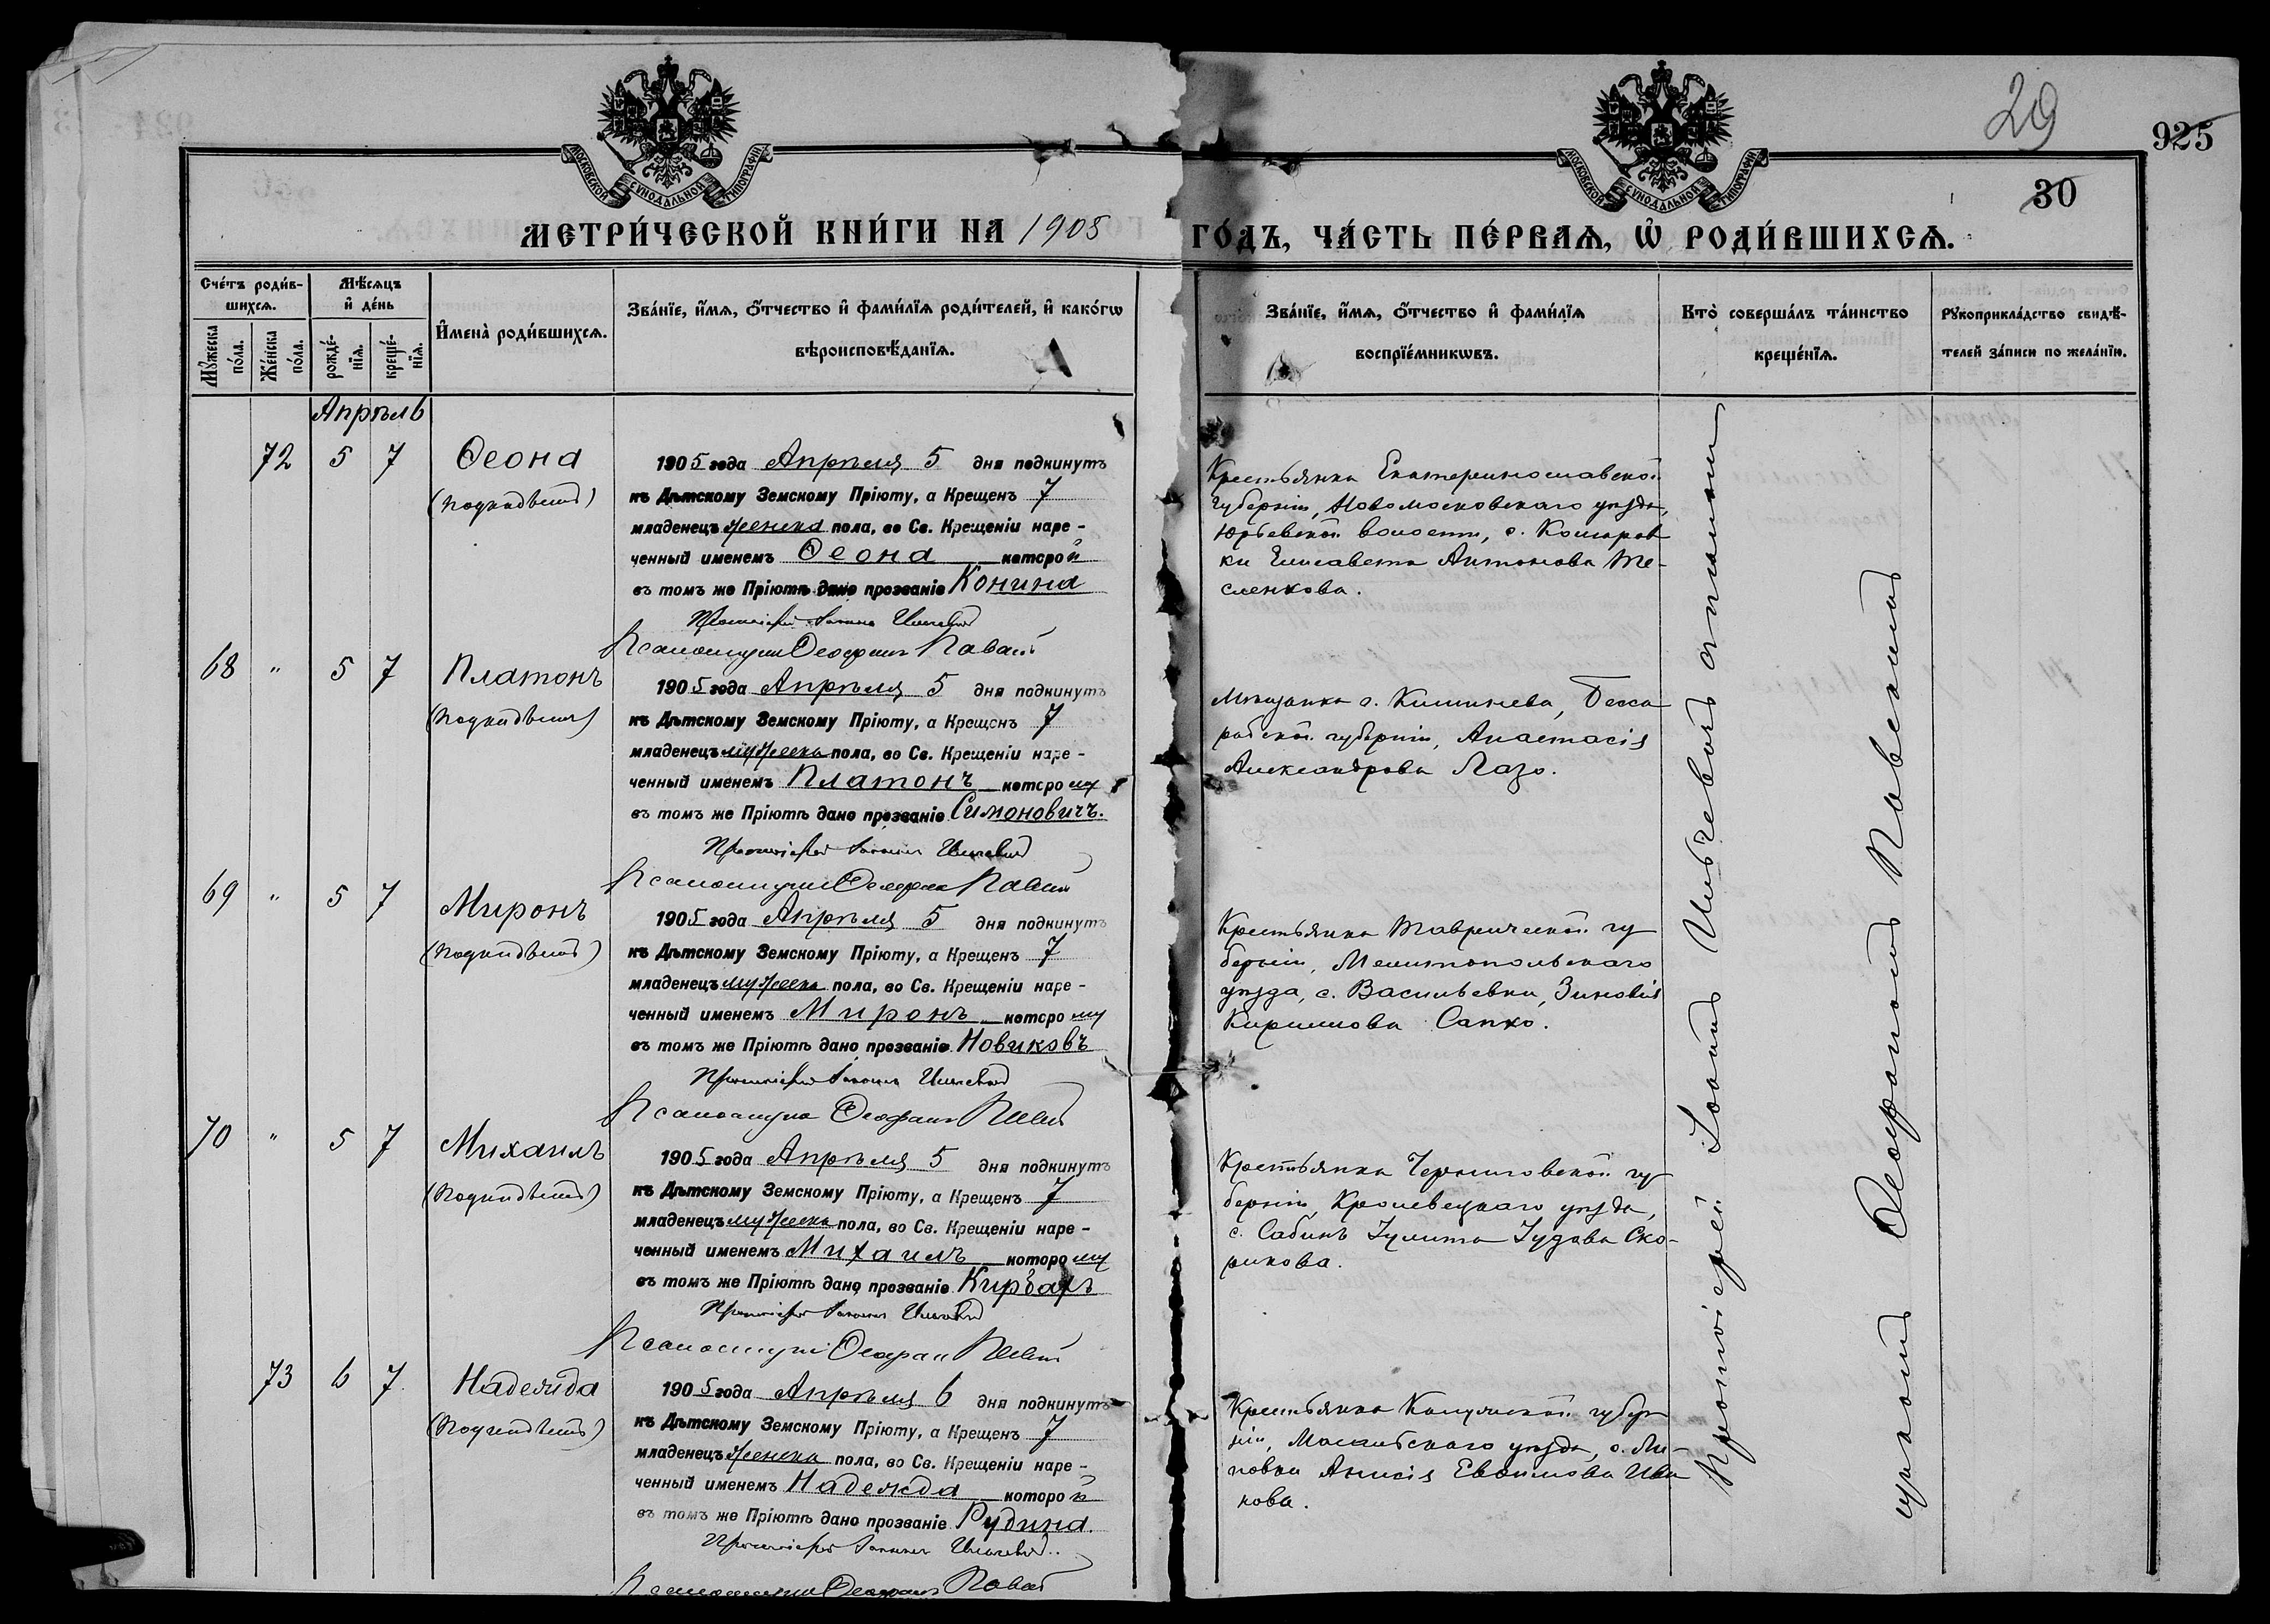 29
925
30
МОСКОВСКОЙ СѴНОДАЛЬНОЙ ТИПОГРАФІИ
МОСКОВСКОЙ СѴНОДАЛЬНОЙ ТИПОГРАФІИ
МЕТРИ́ЧЕСКОЙ КНИ́ГИ НА 1905 ГО́ДЪ, ЧА́СТЬ ПЕ́РВАѦ, Ѽ РОДИ́ВШИХСѦ.
Сче́тъ роди́в-
шихсѧ.
Мꙋ́жеска по́ла.
Же́нска по́ла.
Мѣ́сѧцъ
и҆ де́нь
рожде́-нїѧ.
креще́-нїѧ.
И҆мена̀ роди́вшихсѧ.
Зва́нїе, и҆́мѧ, ѻ҆́тчество и҆ фами́лїѧ роди́телей, и҆ како́гѡ
вѣроисповѣ́данїѧ.
Зва́нїе, и҆́мѧ, ѻ҆́тчество и҆ фами́лїѧ
воспрїе́мникѡвъ.
Кто̀ соверша́лъ та́инство
креще́нїѧ.
Рꙋкоприкла́дство свидѣ́-
телей за́писи по жела́нїю.
Апрѣль
72 5 7 Ѳеона
(подкидышъ)
1905 года Апрѣля 5 дня подкинутъ
къ Дѣтскому Земскому Пріюту, а Крещенъ 7
младенецъ женска пола, во Св. Крещеніи наре-
ченный именемъ Ѳеона которой
въ томъ же Пріютѣ дано прозваніе Конина
Протоіерей Іоаннъ
Псаломщикъ Ѳеофанъ
Крестьянка Екатеринославской
губерніи, Новомосковскаго уѣзда,
Юрьевской волости,
ки Елисавета Антонова Те-
сленкова.
68 " 5 7 Платонъ
(подкидышъ)
1905 года Апрѣля 5 дня подкинутъ
къ Дѣтскому Земскому Пріюту, а Крещенъ 7
младенецъ мужеска пола, во Св. Крещеніи наре-
ченный именемъ Платонъ которому
въ томъ же Пріютѣ дано прозваніе Симоновичъ.
Протоіерей Іоаннъ
Псаломщикъ Ѳеофанъ
Мѣщанка г. Кишинева, Бесса
рабской губерніи, Анастасія
Александрова Лазо.
69 " 5 7 Миронъ
(подкидышъ)
1905 года Апрѣля 5 дня подкинутъ
къ Дѣтскому Земскому Пріюту, а Крещенъ 7
младенецъ мужеска пола, во Св. Крещеніи наре-
ченный именемъ Миронъ которому
въ томъ же Пріютѣ дано прозваніе Новиковъ
Протоіерей Іоаннъ
Псаломщикъ Ѳеофанъ
Крестьянка Таврической гу
берніи, Мелитопольскаго
уѣзда, с. Васильевки, Зиновія
Кириллова Сапко.
70 " 5 7 Михаилъ
(подкидышъ)
1905 года Апрѣля 5 дня подкинутъ
къ Дѣтскому Земскому Пріюту, а Крещенъ 7
младенецъ мужеска пола, во Св. Крещеніи наре-
ченный именемъ Михаилъ которому
въ томъ же Пріютѣ дано прозваніе
Протоіерей Іоаннъ
Псаломщикъ Ѳеофанъ
Крестьянка Черниговской гу
берніи, Кролевецкаго уѣзда,
с. Іулита Іудова Ско-
рикова.
73 6 7 Надежда
(подкидышъ)
1905 года Апрѣля 6 дня подкинутъ
къ Дѣтскому Земскому Пріюту, а Крещенъ 7
младенецъ женска пола, во Св. Крещеніи наре-
ченный именемъ Надежда которой
въ томъ же Пріютѣ дано прозваніе Рудина.
Протоіерей Іоаннъ
Псаломщикъ Ѳеофанъ
Крестьянка Калужской губер
ніи, уѣзда,
Анисія Ива
нова.
Протоіерей Іоаннъ съ псалом
щикомъ Ѳеофаномъ